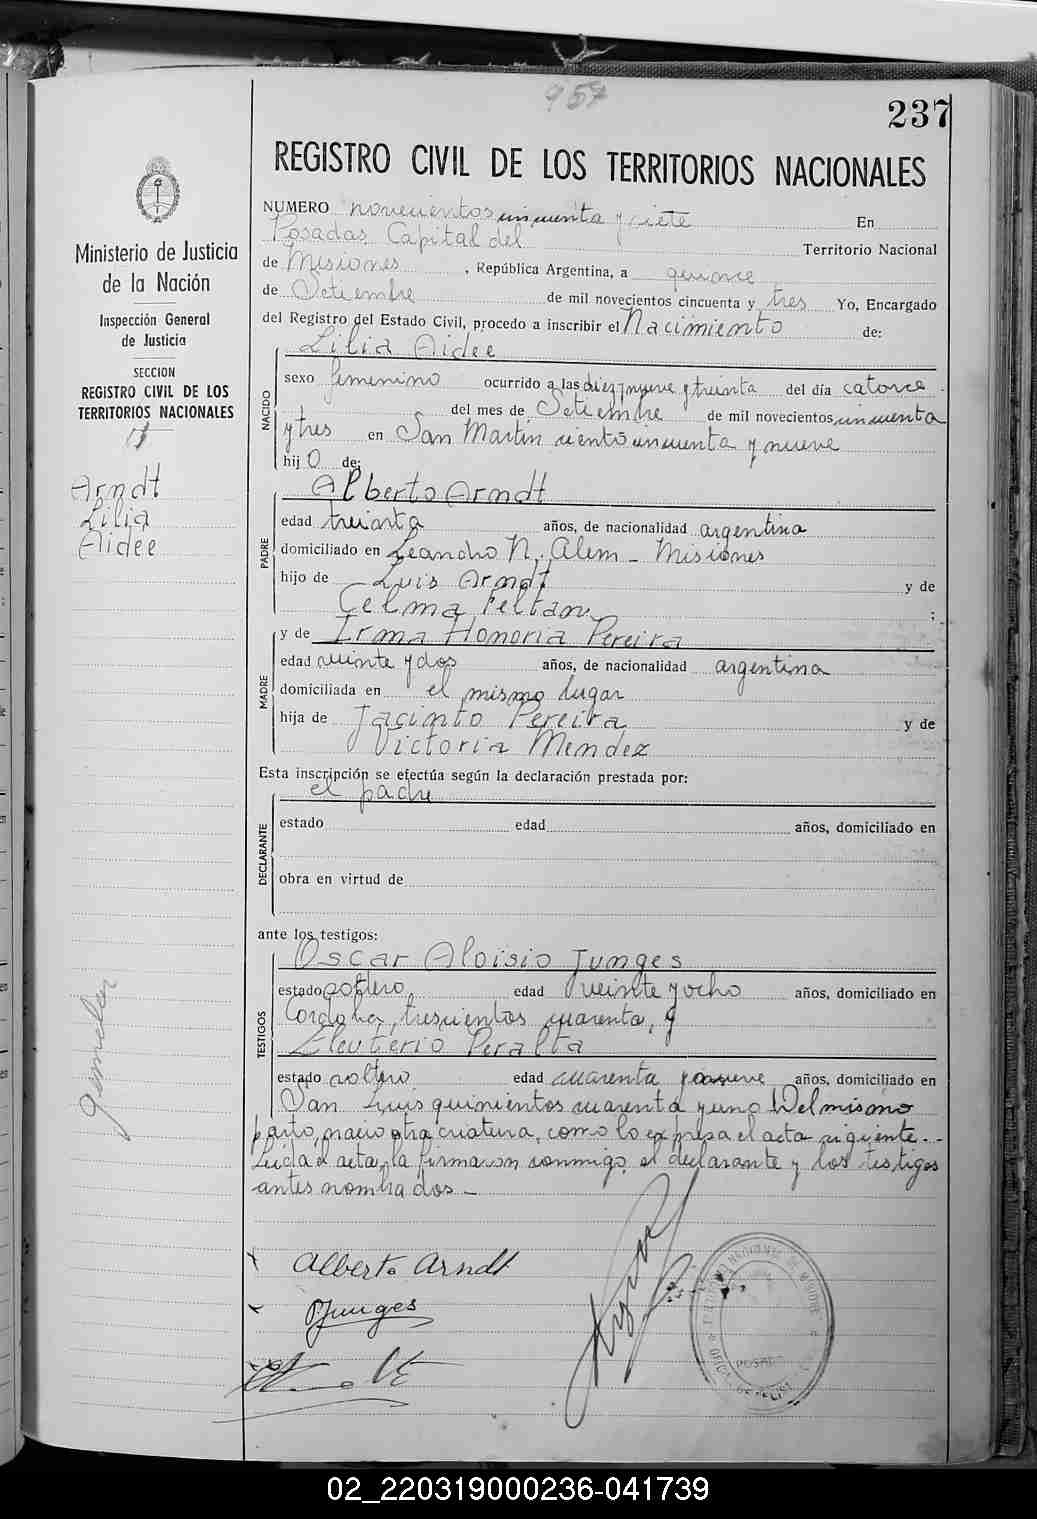 957
237
REGISTRO CIVIL DE LOS TERRITORIOS NACIONALES
Ministerio de Justicia
de la Nación
Inspección General
de Justicia
SECCION
REGISTRO CIVIL DE LOS
TERRITORIOS NACIONALES
Arndt
Lilia
Aidee
gemelar
NUMERO novecientos cincuenta y siete En
Posadas Capital del Territorio Nacional
de Misiones, República Argentina, a quince
de Setiembre de mil novecientos cincuenta y tres Yo, Encargado
del Registro del Estado Civil, procedo a inscribir el Nacimiento de:
Lilia Aidee
NACIDO
sexo femenino ocurrido a las diez y nueve y treinta del día catorce
del mes de Setiembre de mil novecientos cincuenta
y tres en San Martin ciento cincuenta y nueve
hij O de:
Alberto Arndt
PADRE
edad treinta años, de nacionalidad argentina
domiciliado en Leandro N. Alem - Misiones
hijo de Luis Arndt y de
Celma Peltan ;
y de Irma Honoria Pereira
MADRE
edad veinte y dos años, de nacionalidad argentina
domiciliada en el mismo lugar
hija de Jacinto Pereira y de
Victoria Mendez
Esta inscripción se efectúa según la declaración prestada por:
el padre
DECLARANTE
estado edad años, domiciliado en
obra en virtud de
ante los testigos:
Oscar Aloisio Junges
TESTIGOS
estado soltero edad veinte y ocho años, domiciliado en
Cordoba, trescientos cuarenta, y
Eleuterio Peralta
estado soltero edad cuarenta y nueve años, domiciliado en
San Luis quinientos cuarenta y uno Del mismo
parto, nacio otra criatura, como lo expresa el acta siguiente.-
Leida el acta, la firmaron conmigo, el declarante y los testigos
antes nombrados.-
Alberto Arndt
OJunges
POSADAS
02_220319000236-041739